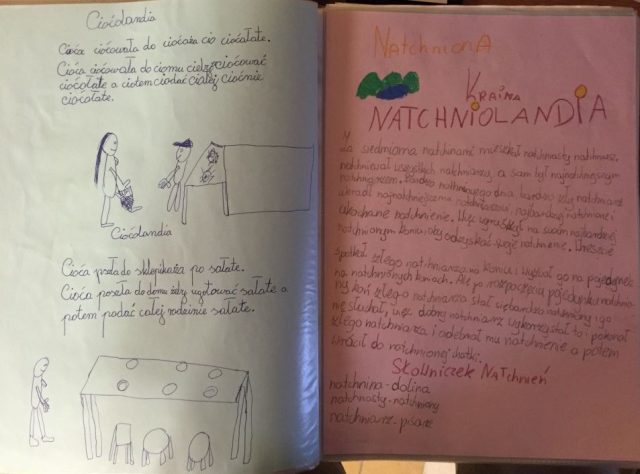 Ciócolandia
Cioca ciócowała do ciócaża cio ciócałate.
Cioca ciócowała do ciomu cieby ciócować
ciócołate a ciotem ciodać ciałej ciocinie
ciocłate.
Ciócolandia
Ciocia poszła do sklepikaża po sałate.
Ciocia poszła do domu żeby ugotować sałate a
potem podać całej rodzinie sałate.
NatchnionA
KRAiNA
NATCHNIOLANDIA
Za siedmioma natchninami mieszkał natchniasty natchniarz,
natchniewał wszystkich natchniarzy, a sam był najnatchnieńszym
natchnigrzem. Pewnego dnia bardzo zły natchniarz
ukradł najnatchnieńszemu natchniarzowi, najbardziej natchnione i
ukochane natchnienie. Więc wyruszył na swoim najbardziej
natchnionym koniu, aby odzyskać swoje natchnienie. Wreszcie
spotkał złego natchniarza na koniu i wyzwał go na pojedynek
na natchnionych koniach. Ale po rozpoczęciu pojedynku natchnio-
ny koń złego natchniarza stał się bardzo natchniony i go
nie słuchał, więc dobry natchniarz wykorzystał to i pokonał
złego natchniarza i odebrał mu natchnienie a potem
wrócił do natchnionej chatki.
Słowniczek Natchnień
natchnina - dolina
natchniasty - natchniony
natchniarz - pisarz